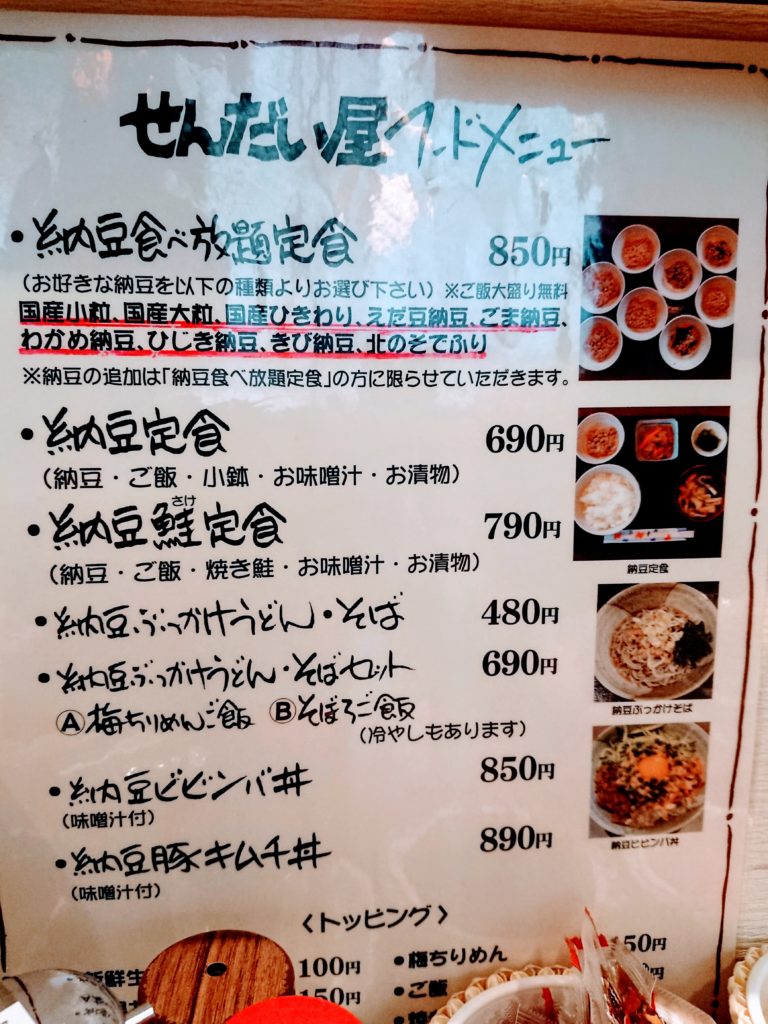 せんだい屋フードメニュー
・納豆食べ放題定食 850円
(お好きな納豆を以下の種類よりお選び下さい) ※ご飯大盛り無料
国産小粒、国産大粒、国産ひきわり、えだ豆納豆、ごま納豆、
わかめ納豆、ひじき納豆、きび納豆、北のそでふり
※納豆の追加は「納豆食べ放題定食」の方に限らせていただきます。
・納豆定食 690円
(納豆・ご飯・小鉢・お味噌汁・お漬物)
納豆定食
さけ
・納豆鮭定食 790円
(納豆・ご飯・焼き鮭・お味噌汁・お漬物)
・納豆ぶっかけうどん・そば 480円
・納豆ぶっかけうどん・そばセット 690円
Ⓐ梅ちりめんご飯 Ⓑそぼろご飯
(冷やしもあります)
納豆ぶっかけそば
・納豆ビビンバ丼 850円
(味噌汁付)
納豆ビビンバ丼
・納豆豚キムチ丼 890円
(味噌汁付)
〈トッピング〉
新鮮生 100円 ・梅ちりめん 50円
150円 ・ご飯